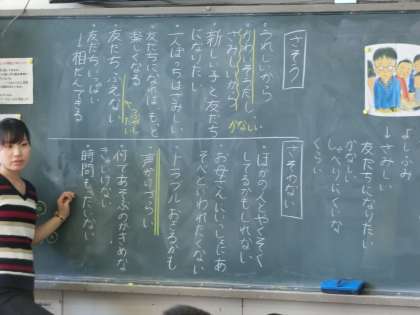 よしふみ
↓さみしい
友だちになりたい
かなしい
しゃべりにくいな
くらい
さそう
・うれしいから
・かわいそうだし
さみしいから
かなしい
・新しい子と友だち
になりたい
・一人ぼっちはさみしい
・友だちになれば もっと
楽しくなる
・友だち ふえない
・友だちいっぱい
↓相だんできる
さそわない
・ほかの人とやくそく
してるかもしれない
・お母さんにいっしょにあ
そべといわれたくない
・トラブル おきるかも
・声がけづらい
・何であそぶのかきめな
きゃいけない
・時間もったいない